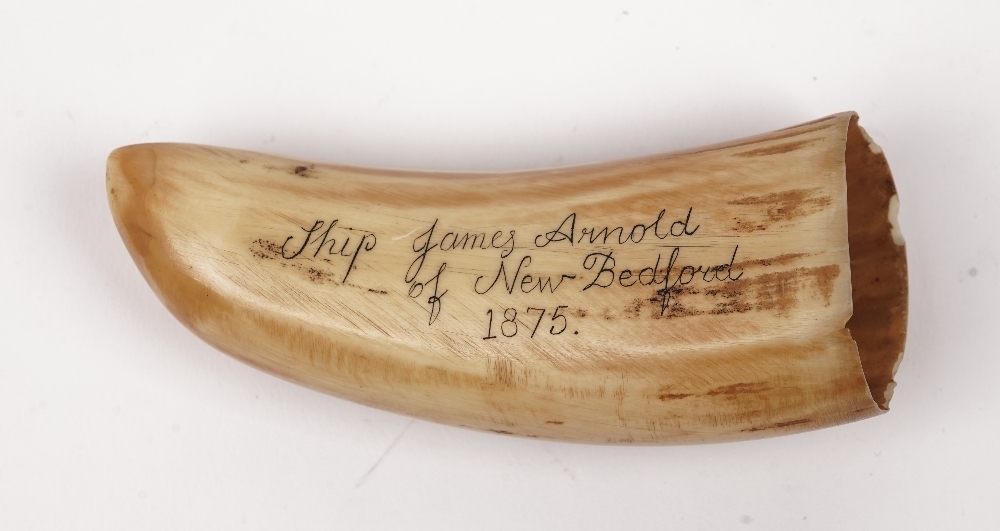 Ship James Arnold
of New Bedford
1875.